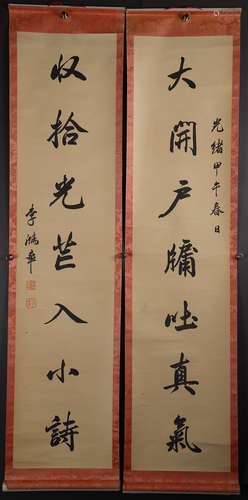 光緒甲午春日
大開戶牖吐真氣
收拾光芒入小詩
李鴻章